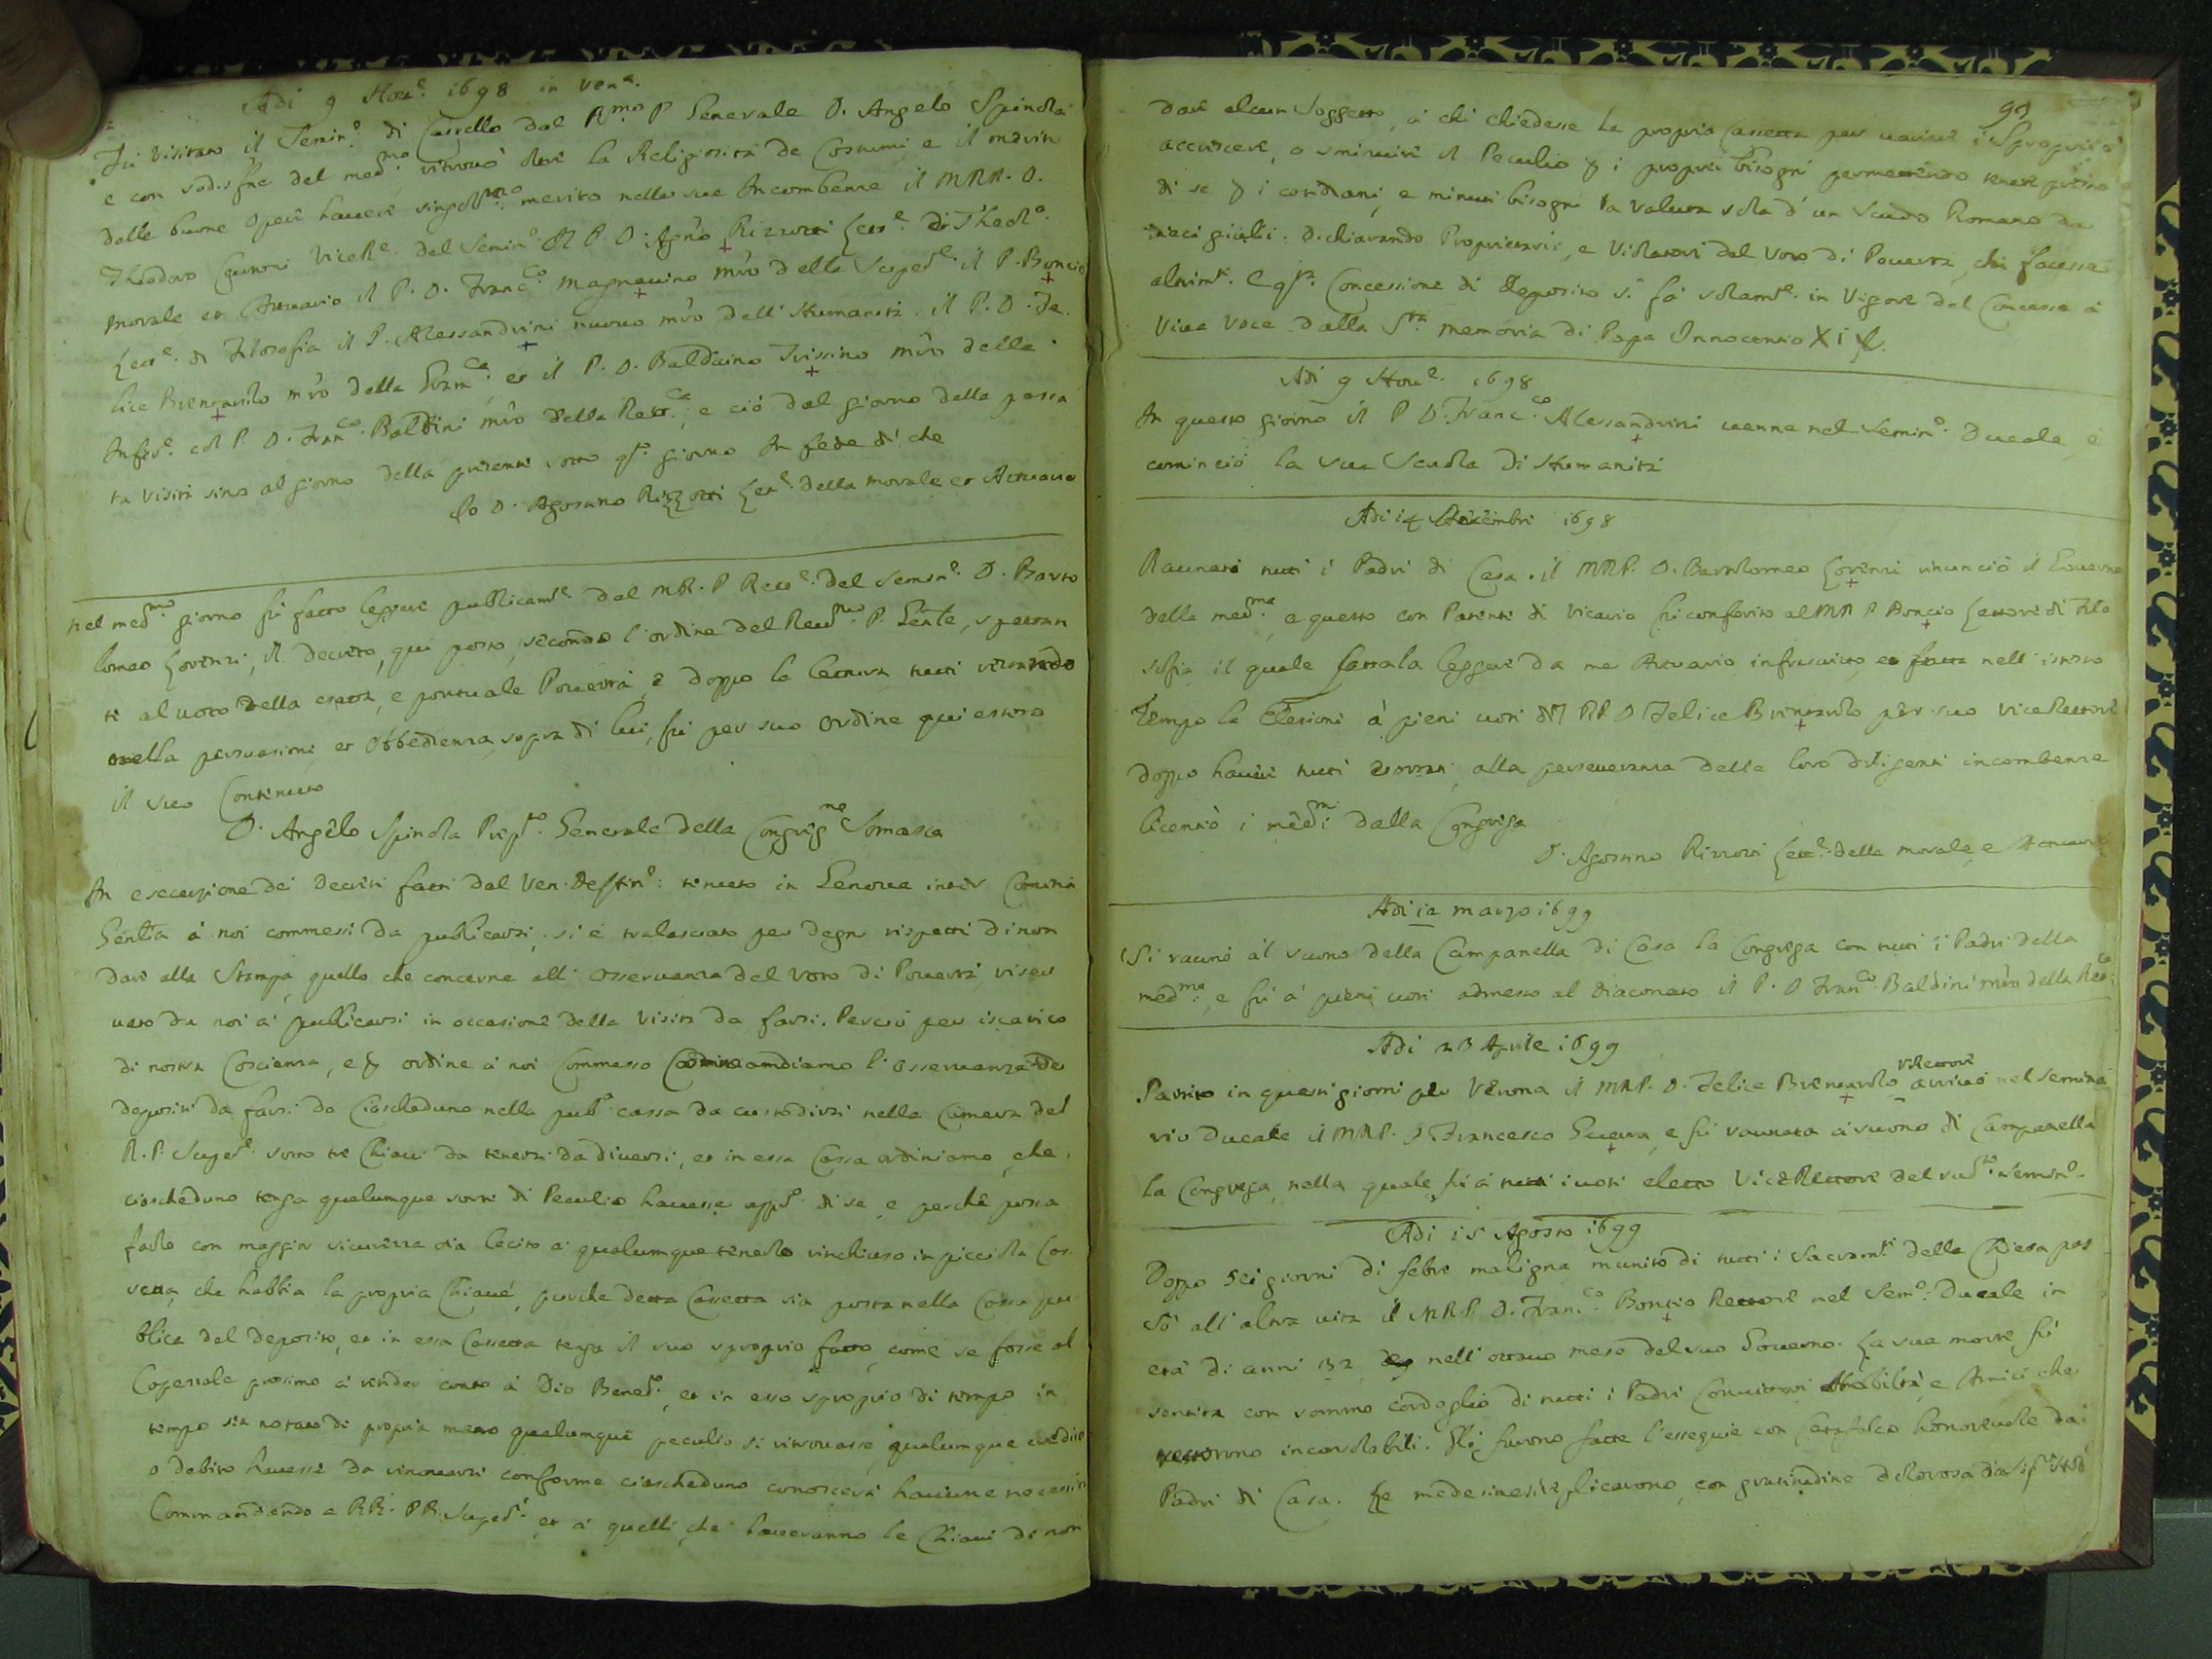 Adi 9 Nou.e 1698 in Ven.a
Fù Visitato il Semin.o di Castello dal R.mo P Generale D. Angelo Spinola
e con sodisfne del med.mo ritrouò oltre la Religiosità de Costumi e il merito
delle buone opere hauere singol.mo merito nelle sue Incombenze il MRP. D.
Theodoro Vice Re. del Semin.o Il P. D. Agno Rizzotti Lett.e di Theol.a
Morale et Attuario il P. D. Franc.co mro della Super.e il P. Boncio
Lett.e di Filosofia il P. Alessandrini nuouo mro dell' Humanità. il P. D. Fe.
lice Brentarolo mro della Gram.ca et il P. D. Balduino Trissino mro della
Infer.e col P. D. Fran.co Baldini mro della Rett.ca, e ciò dal giorno della passa
ta Visita sino al giorno della presente sotto q.to giorno In fede di che
Io D. Agostino Rizzotti Let.e della morale et Attuario
nel med.mo giorno fù fatto leggere publicam.te dal M.R. P Rett.e del Semin.o D. Barto
lomeo Lorenzi, il decreto, qui posto, secondo l'ordine del Reu.mo P. Genle, spettan
te al uoto della esatta, e pontuale Pouertà, e doppo la lettura tutti
nella persuasione et Obbedienza sopra di lui, fù per suo ordine qui esteso
il suo Contenuto
D. Angelo Spinola Prep.to Generale della Congreg.ne Somasca
In esecuzione dei decreti fatti dal Ven. Deffin.o tenuto in Genoua
Genlia à noi commessi da publicarsi, si è tralasciato per degni rispetti di non
dare alla Stampa, quello che concerne all' osseruanza del Voto di Pouertà, riser
uato da noi à publicarsi in occasione della Visita da farsi. Perciò per iscarico
di nostra Coscienza, e p ordine à noi Commesso Commandiamo l'osseruanza de
depositi da farsi da Ciascheduno nella pub.a cassa da custodirsi nella Camera del
R. P. Super.e sotto tre Chiaui da tenersi da diuersi, et in essa Cassa ordiniamo, che
ciascheduno tenga qualunque sorte di Peculio hauesse app.o di se, e perche possa
farlo con maggior sicurezza sia lecito à qualunque tenerlo rinchiuso in picciola Cas
setta, che habbia la propria Chiaue, purche detta Cassetta sia posta nella Cassa pu
blica del deposito, et in essa Cassetta tenga il suo sproprio fatto, come se fosse al
Capezzale prossimo à render conto à Dio Bened.o et in esso sproprio di tempo in
tempo sia notato di propria mano qualunque peculio si ritrouasse, qualunque credito
o debito hauesse da rinouarsi conforme ciascheduno conoscerà hauerne necessità
Commandando a RR. PP. Super.i et à quelli, che haueranno le Chiaui di non
99
dare alcun Soggetto, à chi chiedesse la propria Cassetta per uariare i Sproprij ò
accrescere, o sminuire il Peculio p i proprii bisogni permettendo tenere presso
di se p i cotidiani, e minuti bisogni la Valuta sola d'un Scudo Romano da
dieci giulij. dichiarando Proprietarij, e Violatori del Voto di Pouertà, chi facesse
altrim.te E q.ta Concessione di Deposito si fà solam.te in Vigore del Concesso à
Viua Voce dalla S.ta memoria di Papa Innocentio XI
Adi 9 Nou.e 1698
In questo giorno il P D. Franc.co Alessandrini uenne nel Semin.o Ducale, e
cominciò la sua Scuola di Humanità
Adi 14 Decembre 1698
Raunati tutti i Padri di Casa. il MRP. D. Bartolomeo Lorenzi rinunciò il Gouerno
della med.ma, e questo con Patente di Vicario fù conferito al MR P Boncio Lettore di Filo
sofia, il quale fattala leggere da me Attuario infrascritto, et fatta nell' istesso
Tempo la Elezione à pieni uoti del RP. D Felice Brentarolo per suo Vice Rettore
doppo hauere tutti esortati alla perseueranza delle loro diligenti incombenze
licentiò i medmi dalla Congrega
D. Agostino Rizzotti Lett.e della morale, e Attuario
Adi 12 marzo 1699
Si raunò al suono della Campanella di Casa la Congrega con tutti i Padri della
med.ma, e fù à pieni uoti admesso al Diaconato il P. D Fran.co Baldini mro della Ret.ca
Adi 23 Aprile 1699
Partito in questi giorni per Verona il MRP. D. Felice Brentarolo V. Rettore arriuò nel Semina
rio Ducale il MRP. D Francesco Guerra, e fù raunata à suono di Campanella
la Congrega, nella quale fù à tutti i uoti eletto Vice Rettore del sud.to Semin.o
Adi 15 Agosto 1699
Doppo sei giorni di febre maligna munito di tutti i Sacram.ti della Chiesa pas
sò all' altra uita il MRP. D. Fran.co Bontio Rettore nel Sem.o Ducale in
età di anni 32 nell' ottauo mese del suo Gouerno. La sua morte fù
sentita con sommo cordoglio di tutti i Padri Conuittori Nobiltà, e Amici che
restorono inconsolabili. Gli furono fatte l'essequie con Catafalco honoreuole dai
Padri di Casa. Le medesime si replicarono, con gratitudine dolorosa